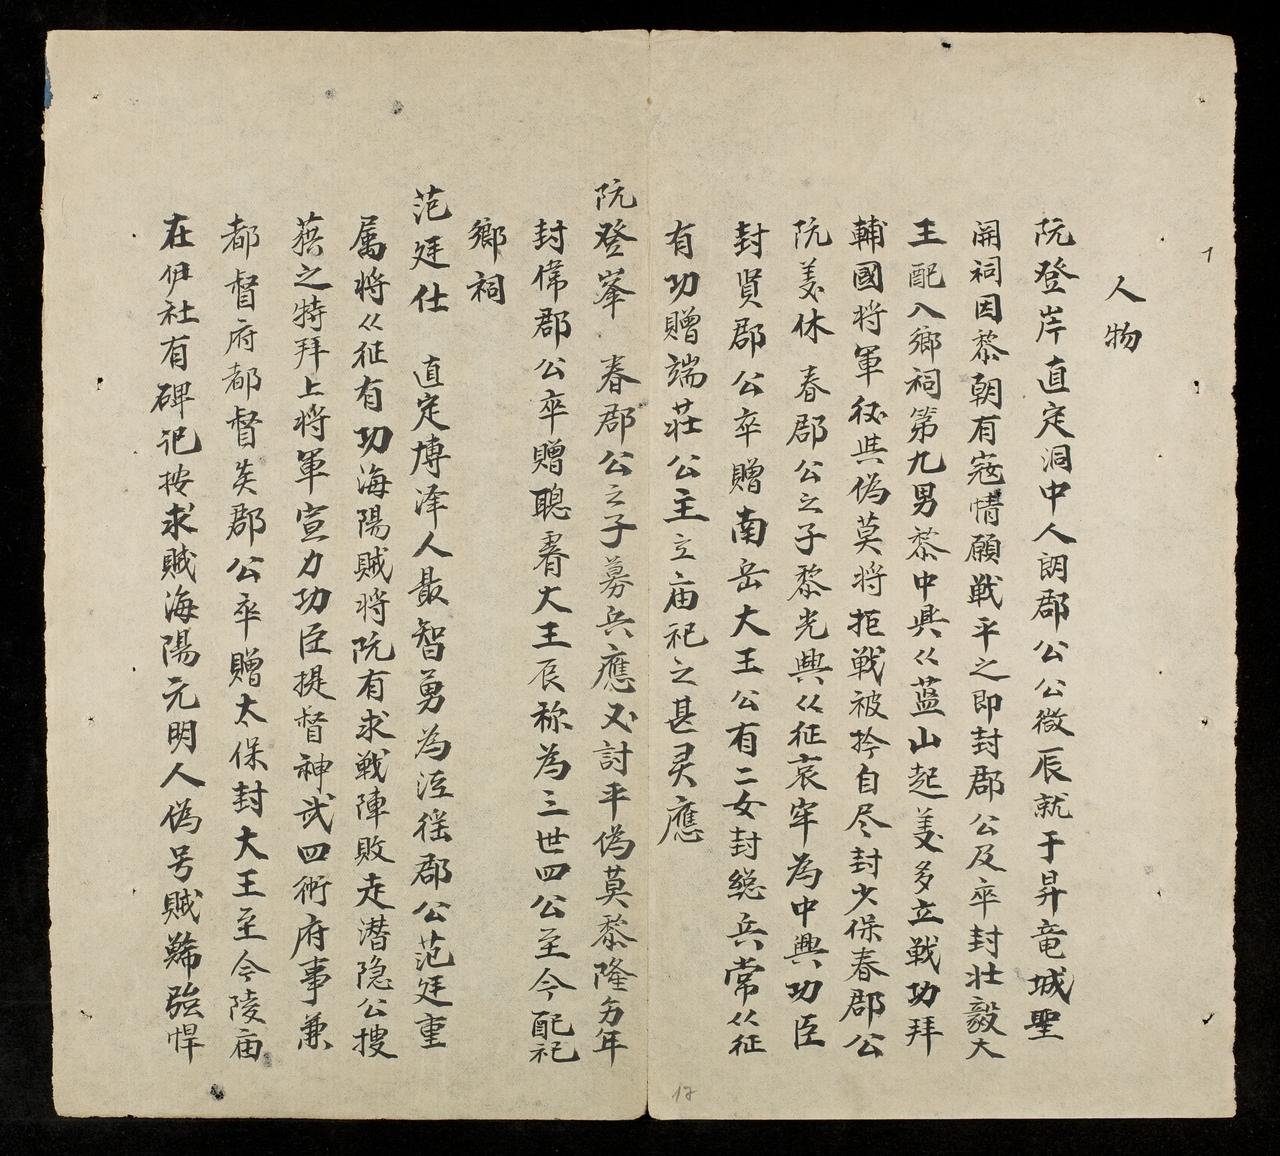 人物
阮登岸直定洞中人朗郡公公微辰就于昇竜城聖
開祠因黎朝有寇情願戦平之即封郡公及卒封壮毅大
王配入鄉祠第九男黎中興从藍山起义多立戦功拜
輔國将軍後與偽莫将拒戦被拎自尽封少保春郡公
阮美休 春郡公之子黎光興从征哀牢為中興功臣
封賢郡公卒贈南岳大王公有二女封総兵常从征
有功贈端荘公主立庙祀之甚灵應
阮登峯 春郡公之子募兵應义討平偽莫黎隆㐱年
封偉郡公卒贈聰睿大王辰称為三世四公至今配祀
鄉祠
范廷仕 直定博泽人最智勇為涇徭郡公范廷重
属将从征有功海陽賊将阮有求戦陣敗走潜隐公搜
獲之特拜上将軍宣力功臣提督神武四衛府事兼
都督府都督炎郡公卒贈太保封大王至今陵庙
在伊社有碑祀按求賊海陽元明人偽号賊鯑強悍
17